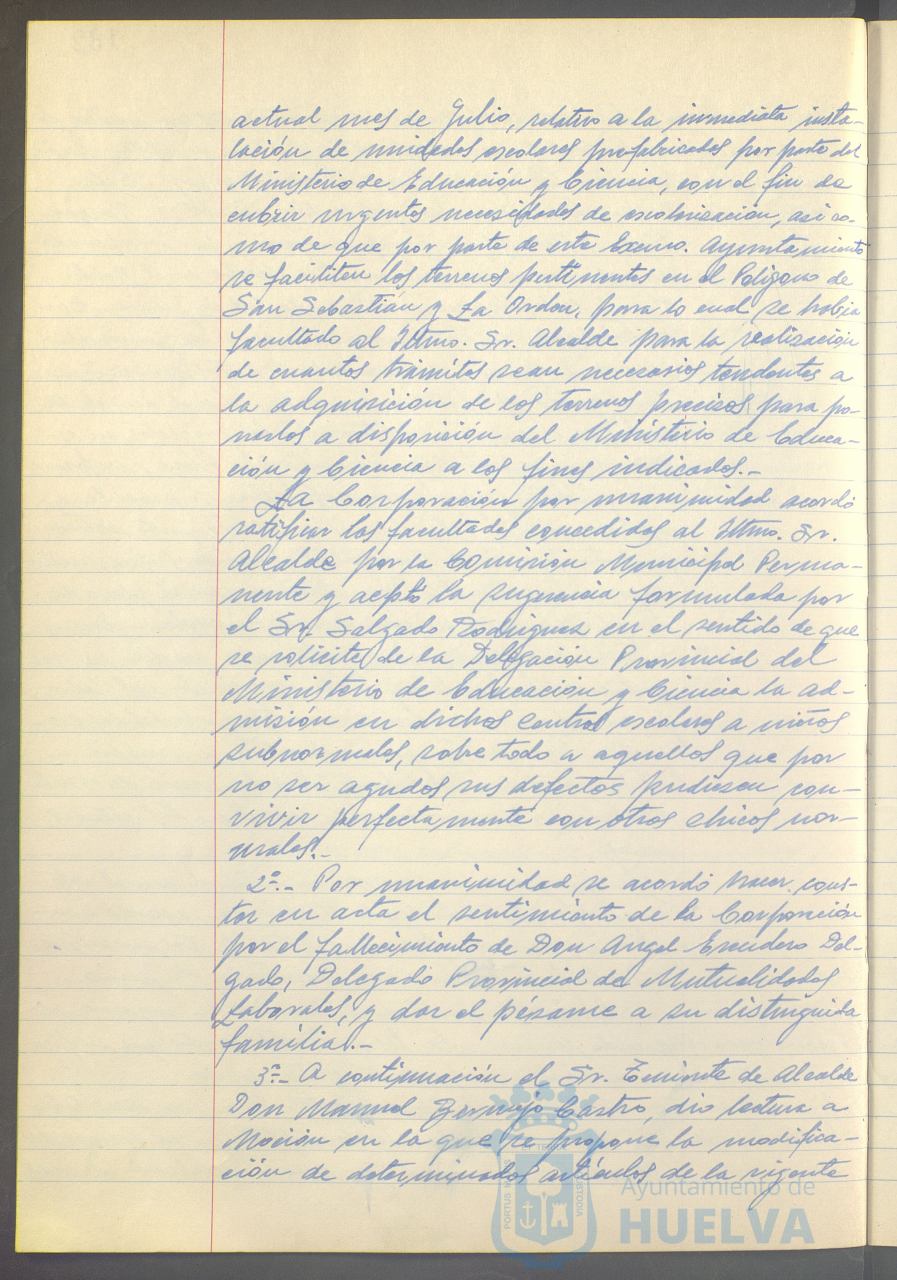 actual mes de Julio, relativo a la inmediata insta-
lación de unidades escolares prefabricadas por parte del
Ministerio de Educación y Ciencia, con el fin de
cubrir urgentes necesidades de escolarización, así co-
mo de que por parte de este Excmo. Ayuntamiento
se faciliten los terrenos pertinentes en el Polígono de
San Sebastián y La Orden, para lo cual se había
facultado al Iltmo. Sr. Alcalde para la realización
de cuantos trámites sean necesarios tendentes a
la adquisición de los terrenos precisos para po-
nerlos a disposición del Ministerio de Educa-
ción y Ciencia a los fines indicados.-
La Corporación por unanimidad acordó
ratificar las facultades concedidas al Iltmo. Sr.
Alcalde por la Comisión Municipal Perma-
nente y aceptó la sugerencia formulada por
el Sr. Salgado Rodríguez en el sentido de que
se solicite de la Delegación Provincial del
Ministerio de Educación y Ciencia la ad-
misión en dichos centros escolares a niños
subnormales, sobre todo a aquellos que por
no ser agudos sus defectos pudiesen con-
vivir perfectamente con otros chicos nor-
males.-
2º.- Por unanimidad se acordó hacer cons-
tar en acta el sentimiento de la Corporación
por el fallecimiento de Don Angel Escudero Del-
gado, Delegado Provincial de Mutualidades
Laborales, y dar el pésame a su distinguida
familia.-
3º.- A continuación el Sr. Teniente de Alcalde
Don Manuel Bermejo Castro, dio lectura a
Moción en la que se propone la modifica-
ción de determinados artículos de la vigente
PORTUS
CUSTODIA
Ayuntamiento de
HUELVA